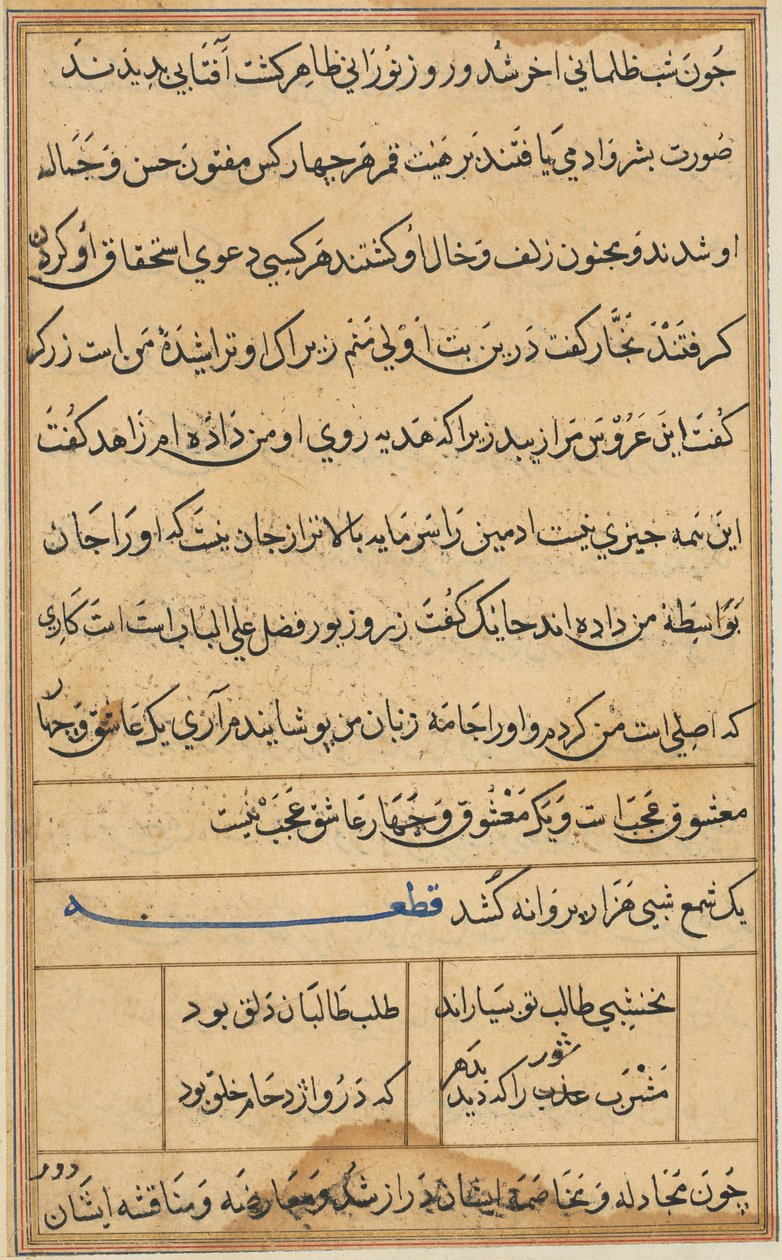 چون شب ظلمانی اخر شد و روز نورانی ظاهر کشت آفتابی بدیدند
صورت بشر و ادمی یافتند بر هیئت قمر هر چهار کس مفتون حسن و جمال
او شدند و مجنون زلف و خال او کشتند هر کسی دعوی استحقاق او کردن
کرفتند نجّار کفت درین بت اولی منم زیراک او تراشیدهٔ من است زرکر
کفت این عروس مرا زیبد زیرا که هدیه روی او من داده ام زاهد کفت
این همه چیزی نیست ادمین را سرمایه بالاتر از جان نیست که او را جان
بواسطهٔ من داده اند حایک کفت زر و زیور فضل علی الباب است کاری
که اصلی است من کردم و او را جامه زنان من پوشانیدم آری یک عاشق و چهار
معشوق عجب است و یک معشوق و چهار عاشق عجب نیست
یک شمع شبی هزار پروانه کشد قطعه
نخشبی طالب تو بسیاراند طلب طالبان دلق بود
مشرب عذب را که دید بدهر شور که درو ازدحام خلق بود
چون مجادله و مخاصمهٔ ایشان دراز شد و معارضه و مناقشه ایشان دور